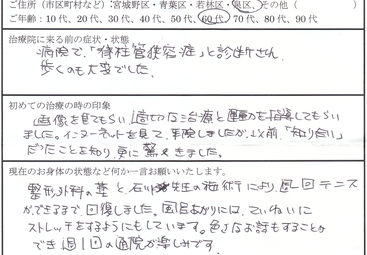 ご住所（市区町村など）：宮城野区・青葉区・若林区・泉区、その他（　　）
ご年齢：10代、20代、30代、40代、50代、60代、70代、80代、90代
治療院に来る前の症状・状態
病院で、「脊柱管狭窄症」と診断され、
歩くのも大変でした。
初めての治療の時の印象
画像を見てもらい適切な治療と運動を指導してもらい
ました。インターネットを見て、来院しましたが、以前、「知り合い」
だったことを知り、更に驚きました。
現在のお身体の状態など何か一言お願いいたします。
整形外科の薬と、石川先生の施術により、週一回テニス
ができるまで、回復しました。風呂あがりには、ていねいに
ストレッチをするようにもしています。色々なお話もすることが
でき週1回の通院が楽しみです。